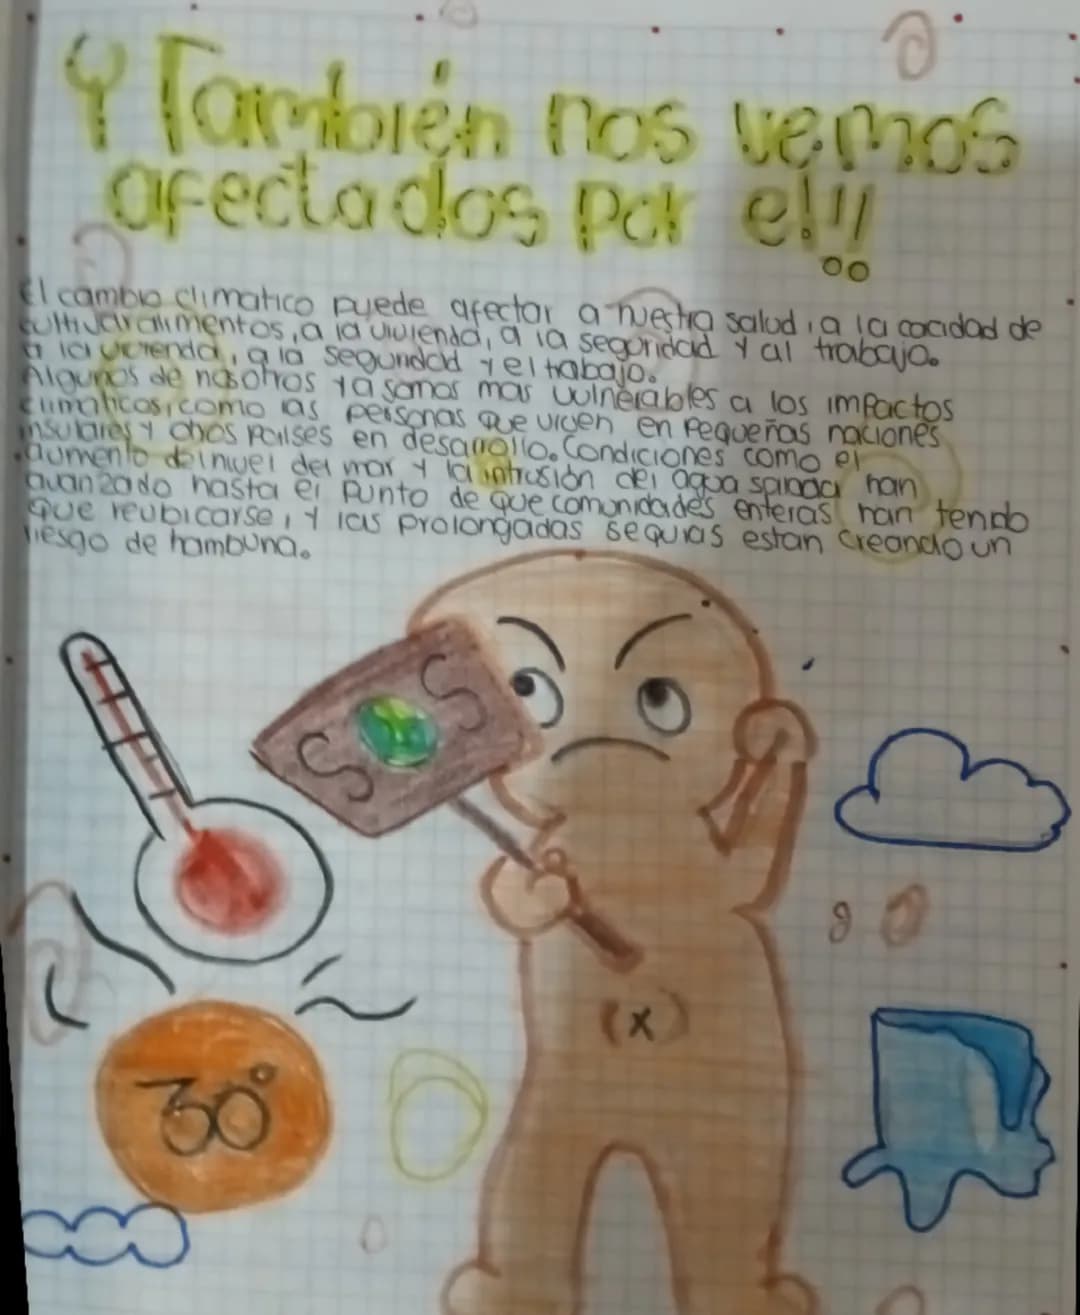 Y También nos vemos
afectados por el!!!
El cambio climatico puede afectar a nuestra salud, a la cocidad de
cultivar alimentos, a la vivienda, a la seguridad y al trabajo.
a la vivienda, a la seguridad y el trabajo.
Algunos de nosotros ya somos mas vulnerables a los impactos
climaticos, como las personas que viven en pequeñas naciones
insulares y otros países en desarrollo. Condiciones como el
aumento del nivel del mar y la intrusión del agua salada han
avanzado hasta el punto de que comunidades enteras han tendo
que reubicarse, y las prolongadas sequias estan creando un
riesgo de hambuna.
SOS
30°
(x)